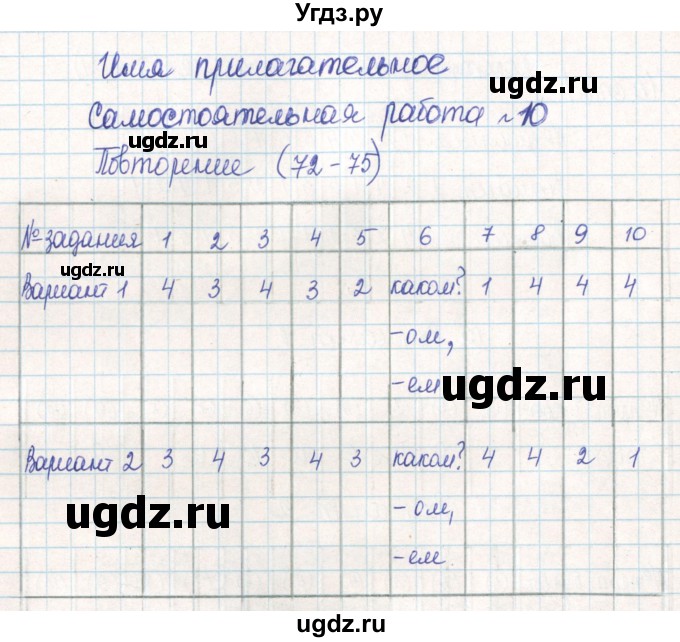 Угдз.ру
Имя прилагательное
ugdz.ru
Самостоятельная работа №10
ugdz.ru
Повторение (72-75)
№ задания 1 2 3 4 5 6 7 8 9 10
ugdz.ru
Вариант 1 4 3 4 3 2 каком? 1 4 4 4
-ом,
-ем
ugdz.ru
Вариант 2 3 4 3 4 3 каком? 4 4 2 1
-ом,
ugdz.ru
-ем
ugdz.ru